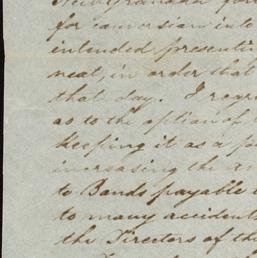 New Granada
for conversion into
intended presenti
neat, in order that
that day. I regre
as to the option of
keeping it as a p
increasing the a
to Bonds payable
to many accidents
the Directors of the